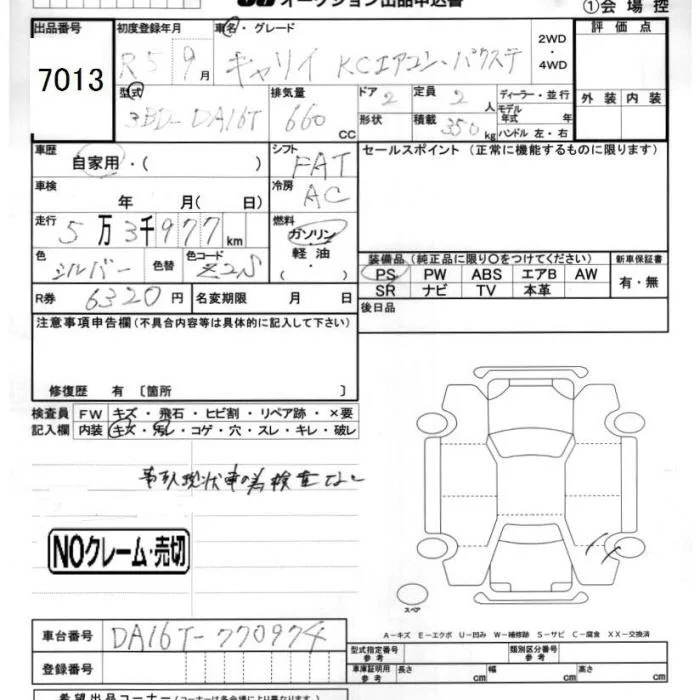 オークション出品申込書
①会場控
出品番号 7013
初度登録年月 R5 9月
車名・グレード キャリイ KCエアコン・パワステ
2WD・4WD
型式 3BD-DA16T
排気量 660 CC
ドア 2
形状
定員 2人
積載 350kg
ディーラー・並行
モデル年式 年
ハンドル 左・右
評価点
外装 内装
車歴 自家用・( )
シフト FAT
車検 年 月( 日)
冷房 AC
走行 5万3千977km
燃料 ガソリン・軽油( ・ )
色 シルバー 色替 色コード Z2S
R券 6320円 名変期限 月 日
セールスポイント (正常に機能するものに限ります)
装備品 (純正品に限り○をつけてください)
PS PW ABS エアB AW
SR ナビ TV 本革
新車保証書 有・無
後日品
注意事項申告欄(不具合内容等は具体的に記入して下さい)
修復歴 有 〔箇所 〕
検査員記入欄
FW キズ・飛石・ヒビ割・リペア跡・×要
内装 キズ・汚レ・コゲ・穴・スレ・キレ・破レ
事故現状車の為検査なし
NOクレーム・売切
スペア
A-キズ E-エクボ U-凹み W-補修跡 S-サビ C-腐食 XX-交換済
車台番号 DA16T-770974
登録番号
型式指定番号 参考
類別区分番号 参考
車庫証明用 参考 長さ cm 幅 cm 高さ cm
希望出品コーナー(コーナーは各会場により異なります)